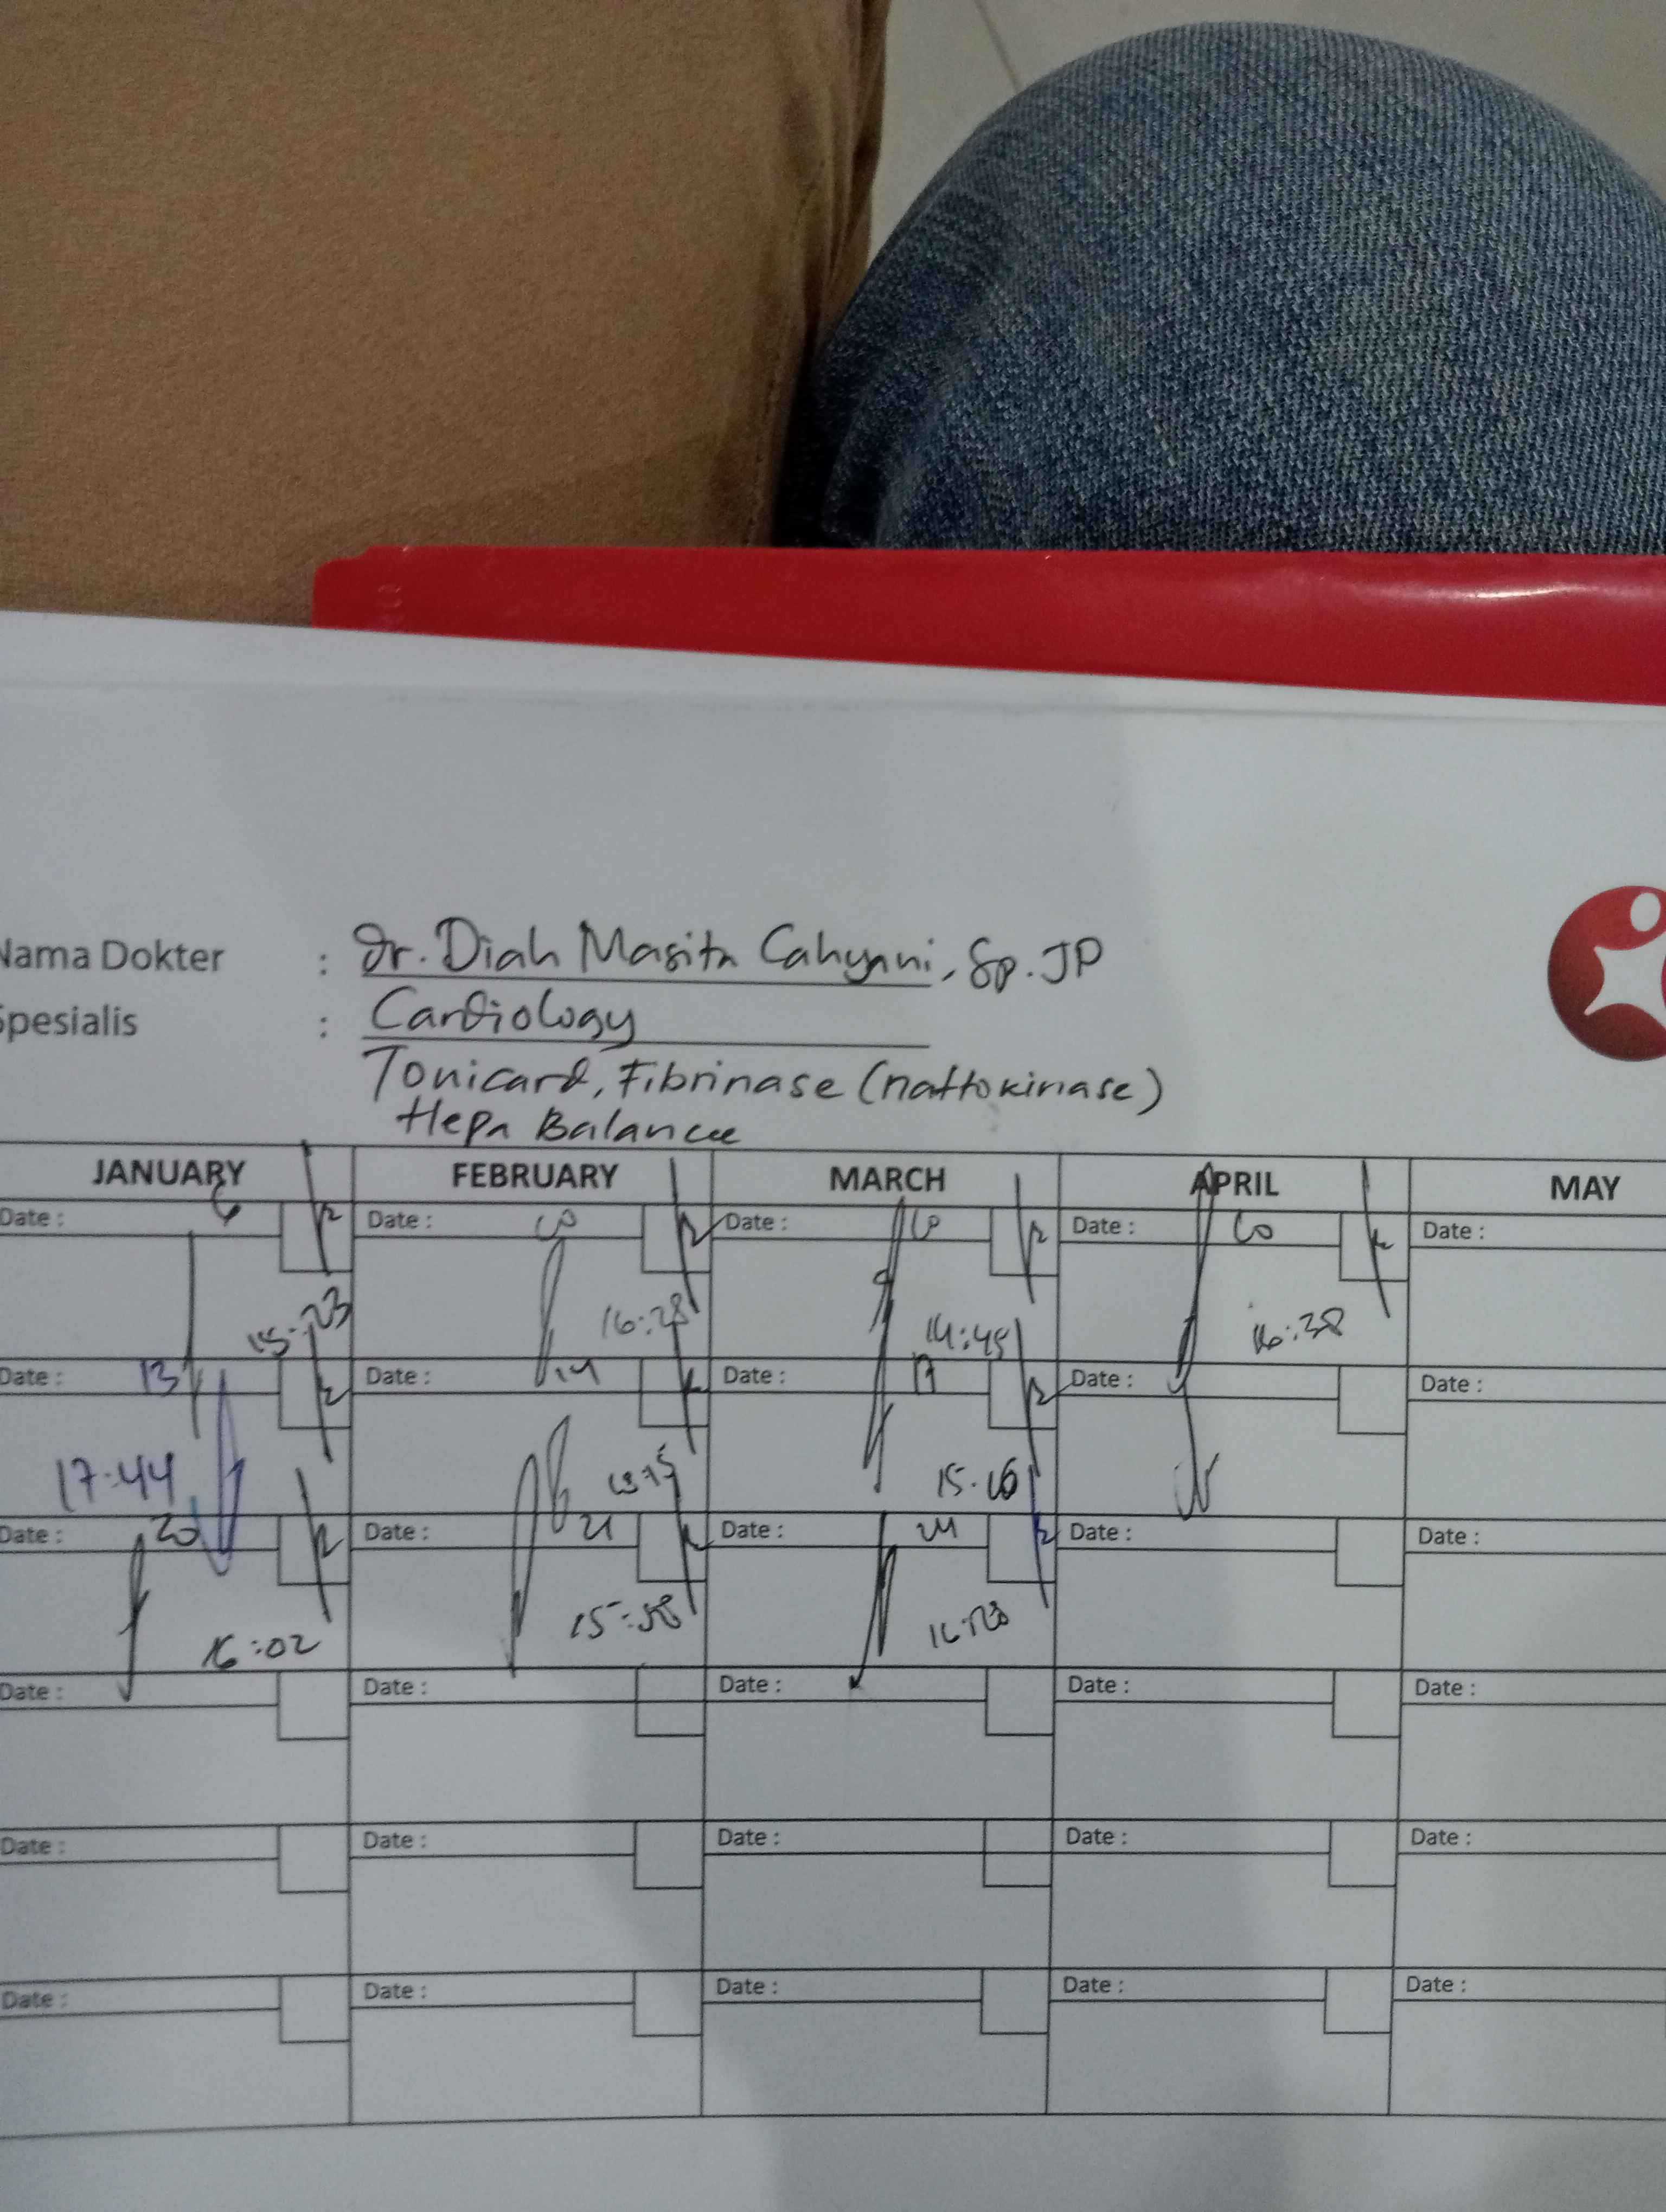 Nama Dokter : dr. Diah Masita Cahyani, Sp.JP
Spesialis : Cardiology
Tonicard, Fibrinase (nattokinase)
Hepa Balance
JANUARY FEBRUARY MARCH APRIL MAY
Date : 6 Date : Date : 10 Date : Date :
15:23 16:28 14:45 16:38
Date : 13 Date : 14 Date : 17 Date : Date :
17:44
Date : 20 Date : 21 Date : 24 Date : Date :
16:02 15:58
Date : Date : Date : Date : Date :
Date : Date : Date : Date : Date :
Date : Date : Date : Date : Date :